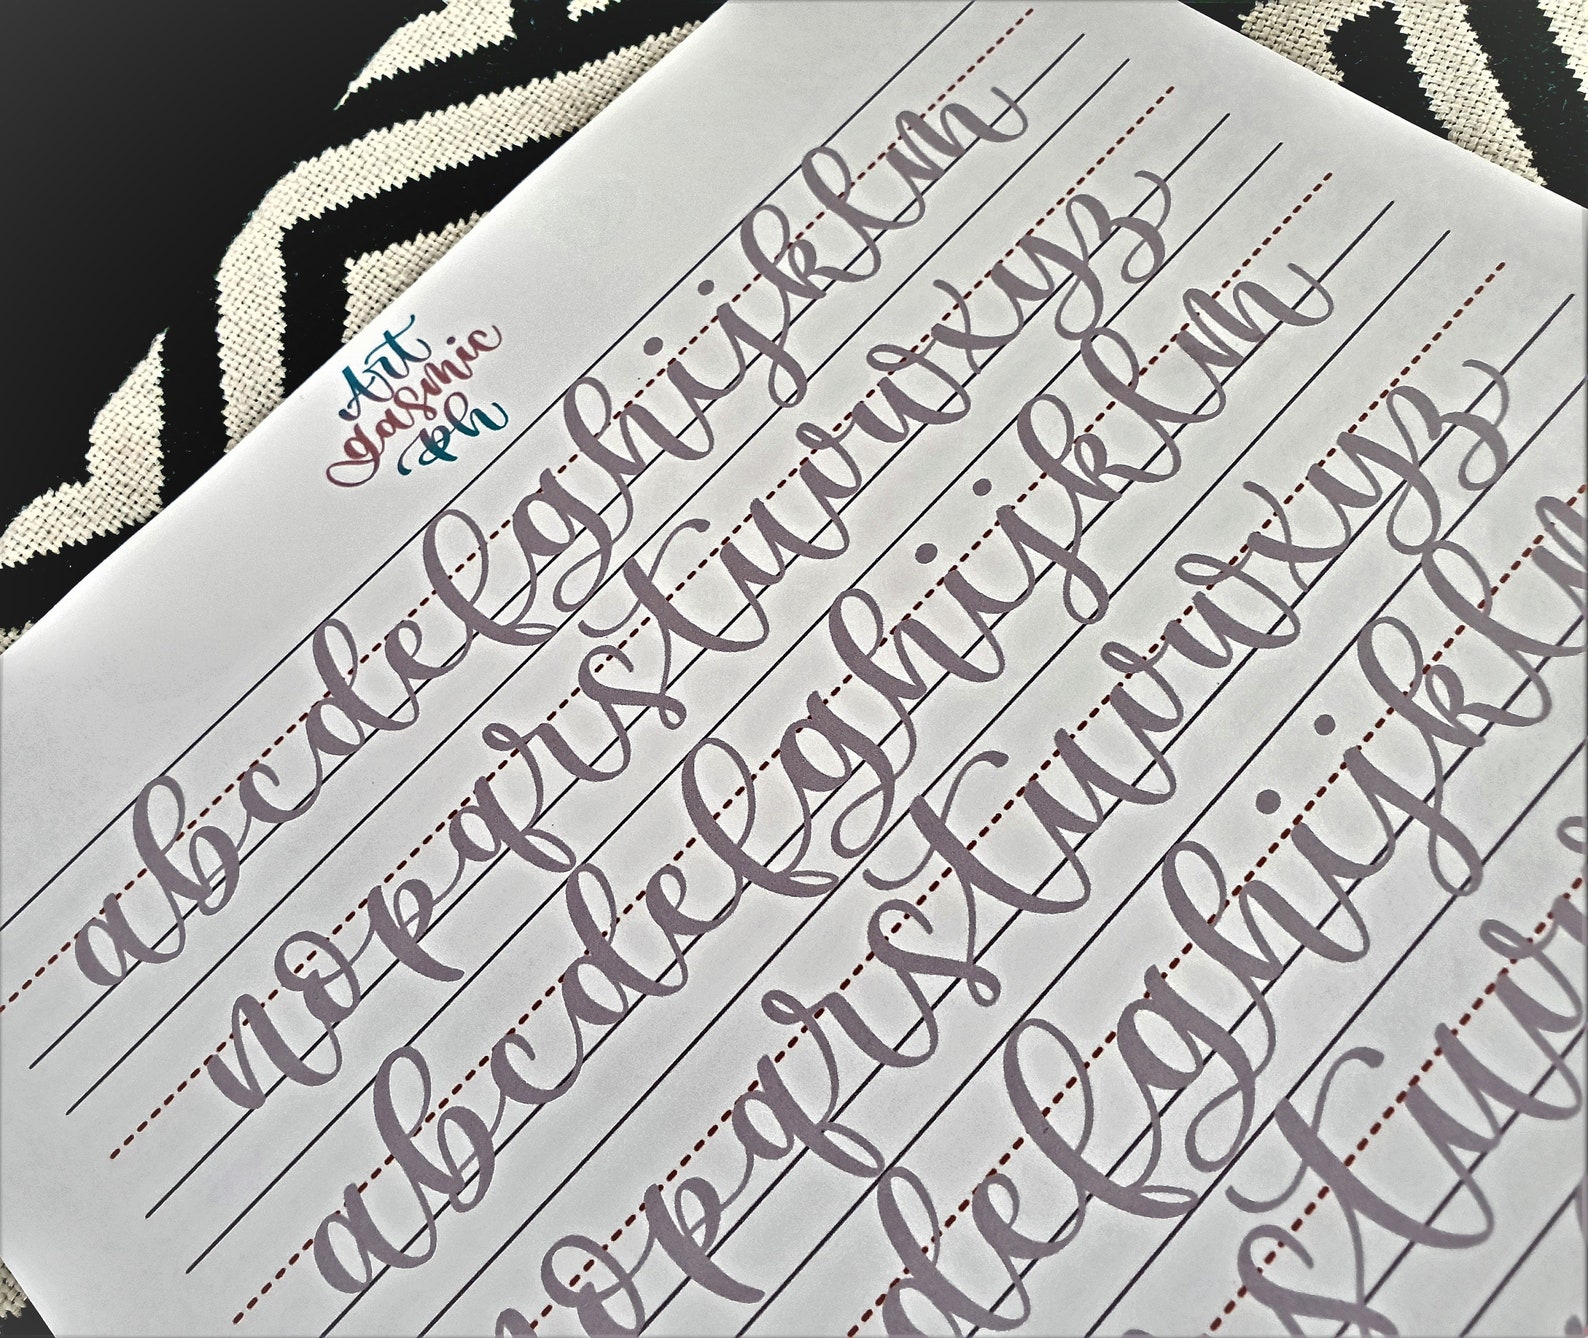 Art
gasmic
ph
abcdefghijklm
nopqrstuvwxyz
abcdefghijklm
nopqrstuvwxyz
defghijklm
stuv